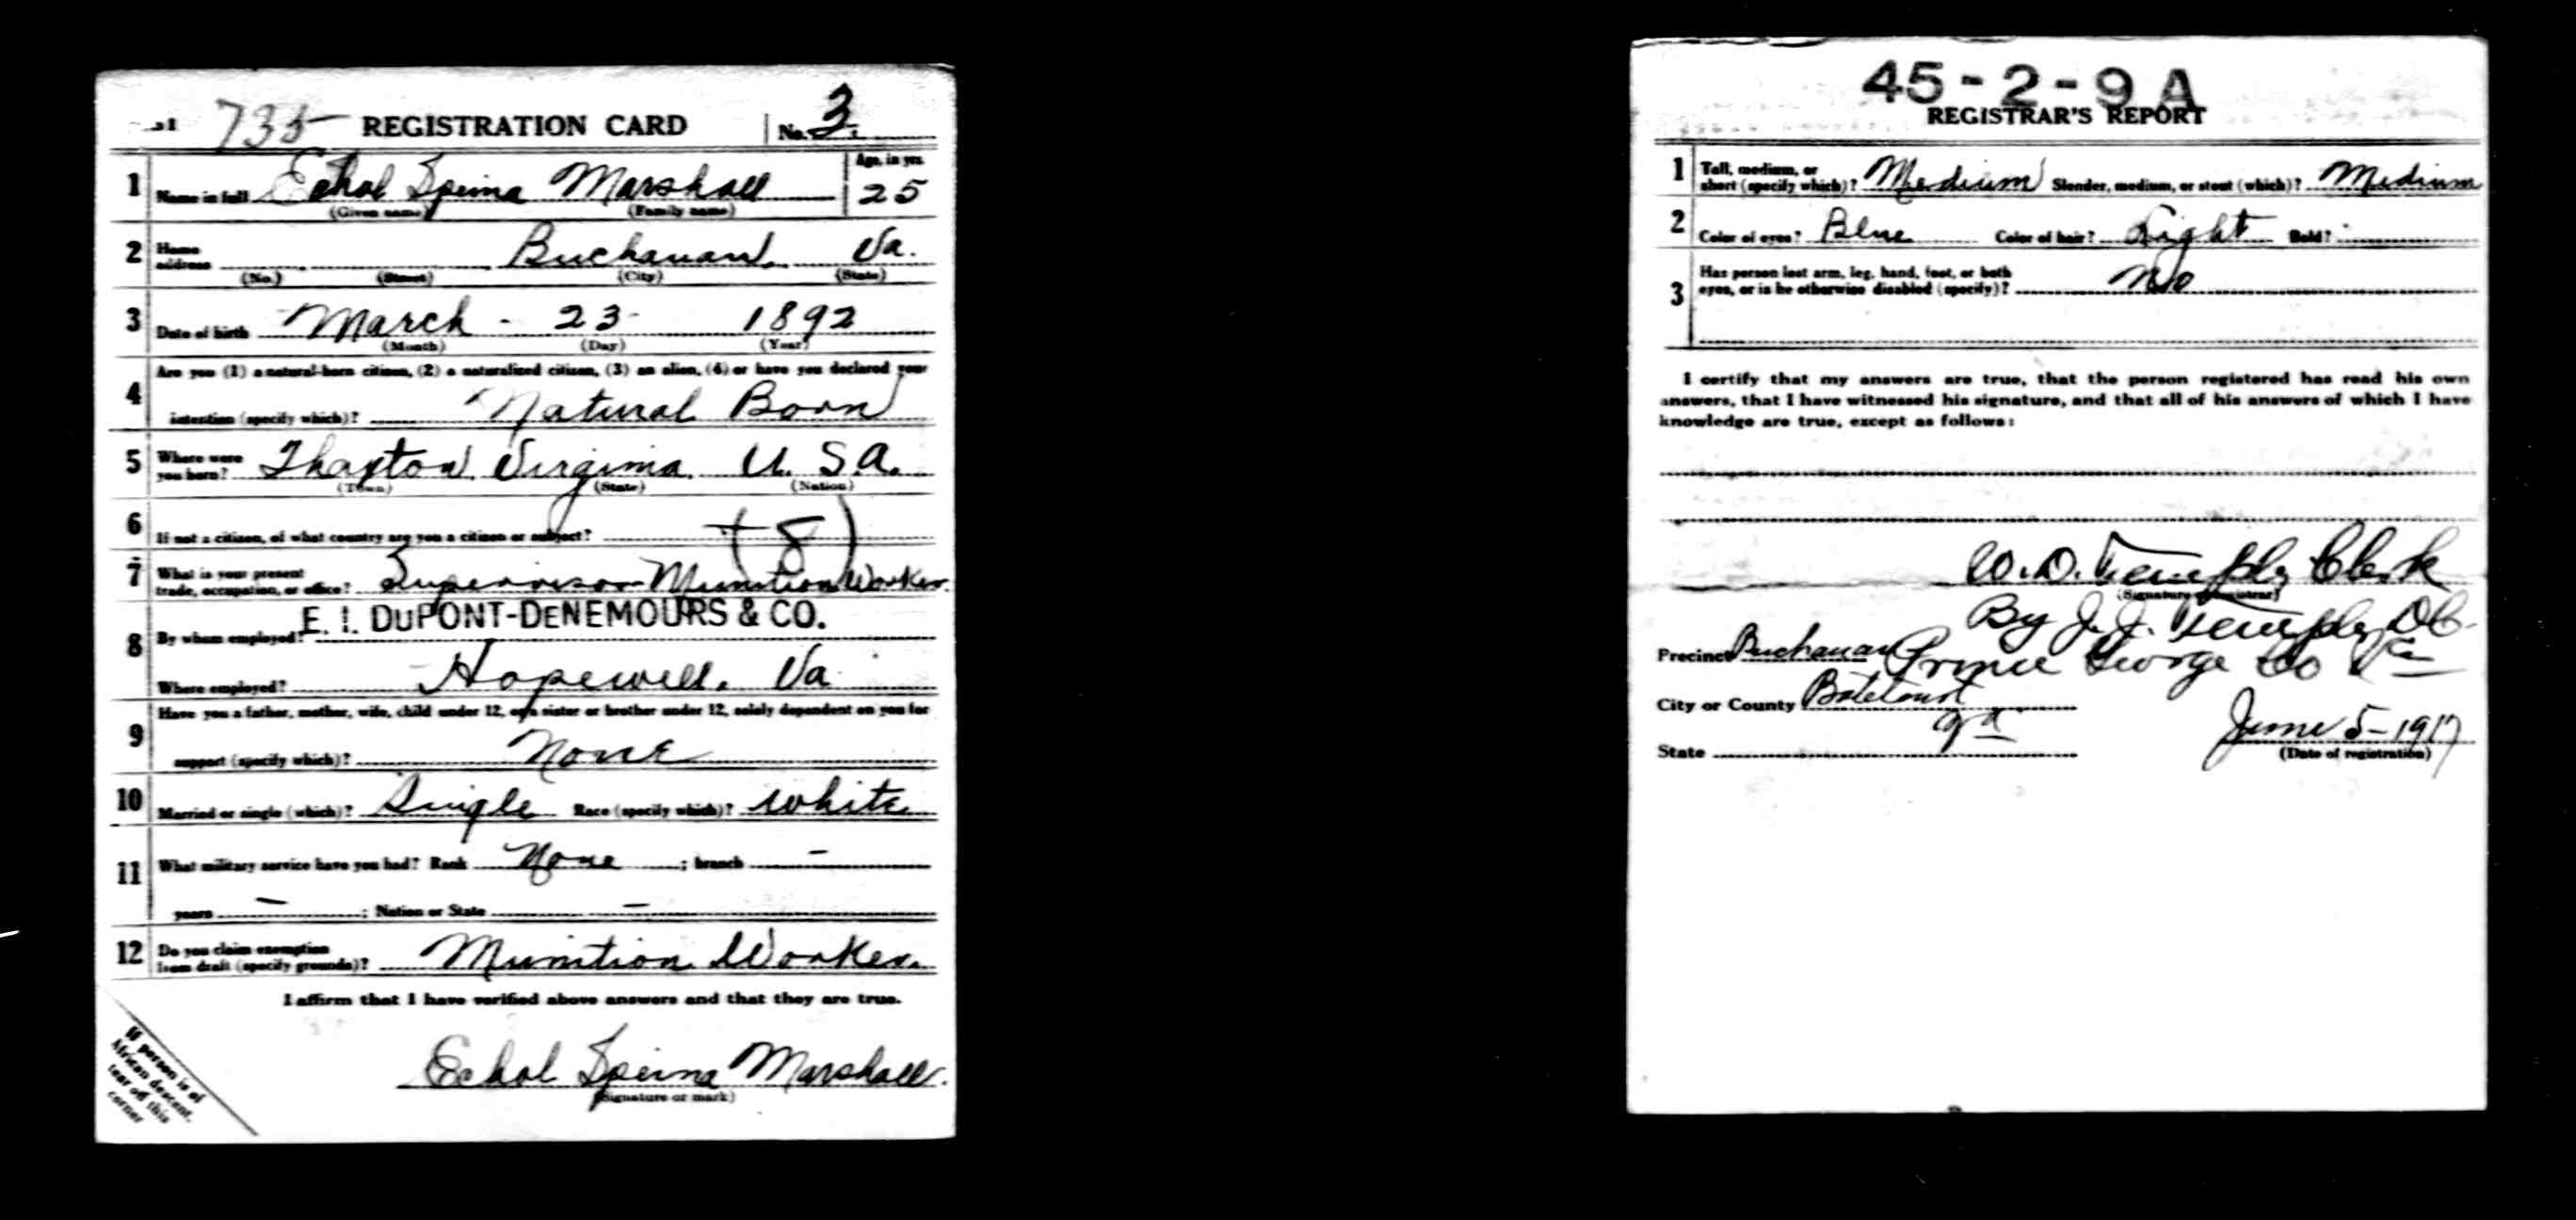 735 REGISTRATION CARD No. 3.
1 Name in full Echol Marshall Age, in yrs. 25
(Given name) (Family name)
2 Home address Buchanan, Va.
(No.) (Street) (City) (State)
3 Date of birth March - 23 - 1892
(Month) (Day) (Year)
4 Are you (1) a natural-born citizen, (2) a naturalized citizen, (3) an alien, (4) or have you declared your
intention (specify which)? Natural Born
5 Where were you born? Thaxton Virginia U. S. A.
(Town) (State) (Nation)
6 If not a citizen, of what country are you a citizen or subject?
(8)
7 What is your present trade, occupation, or office? Supervisor Munition Worker.
E. I. DUPONT-DENEMOURS & CO.
8 By whom employed?
Where employed? Hopewell, Va
9 Have you a father, mother, wife, child under 12, or a sister or brother under 12, solely dependent on you for
support (specify which)? None
10 Married or single (which)? Single Race (specify which)? White
11 What military service have you had? Rank None ; branch -
years - ; Nation or State -
12 Do you claim exemption from draft (specify grounds)? Munition Worker.
I affirm that I have verified above answers and that they are true.
Echol Marshall.
(Signature or mark)
If person is of
African descent,
tear off this
corner
45-2-9 A
REGISTRAR'S REPORT
1 Tall, medium, or short (specify which)? Medium Slender, medium, or stout (which)? Medium
2 Color of eyes? Blue Color of hair? Light Bald? -
3 Has person lost arm, leg, hand, foot, or both eyes, or is he otherwise disabled (specify)? No
I certify that my answers are true, that the person registered has read his own
answers, that I have witnessed his signature, and that all of his answers of which I have
knowledge are true, except as follows:
W. D. Temple, Clerk
(Signature of registrar)
By J. J. Temple, D C.
Precinct Buchanan Prince George Co Va
City or County Botetourt
State Va June 5-1917
(Date of registration)